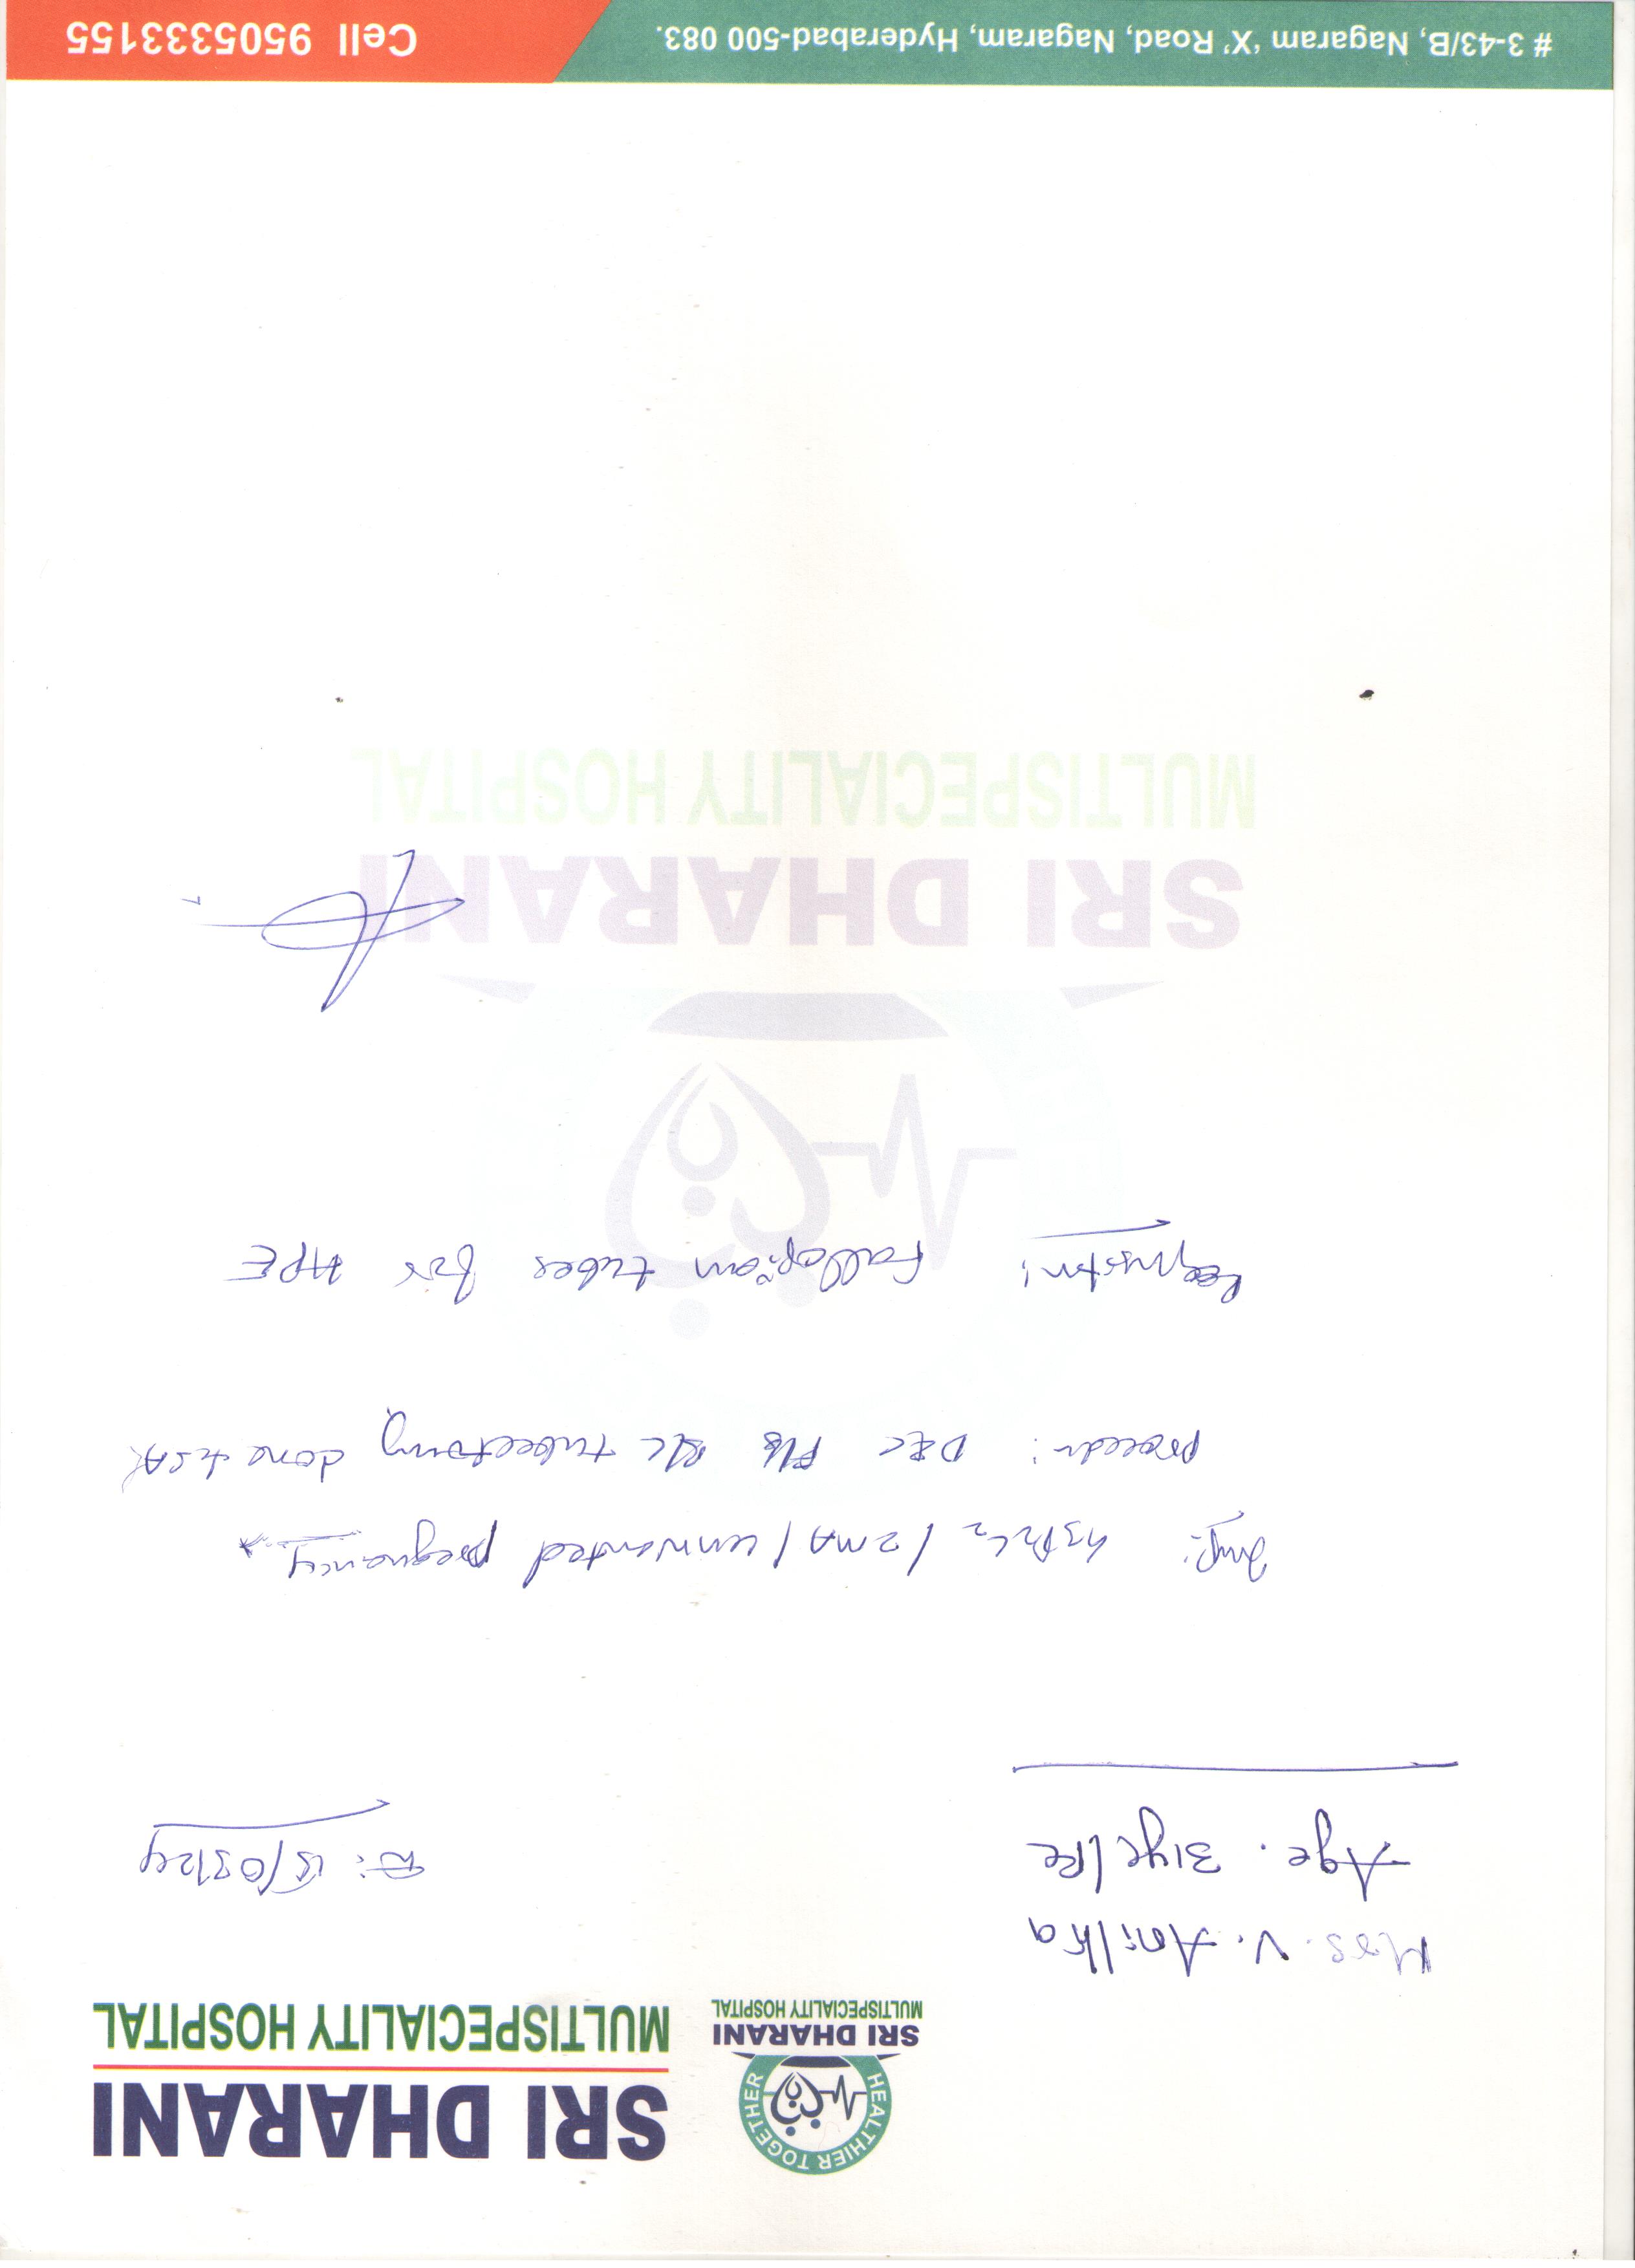 HEALTHIER TOGETHER
SRI DHARANI
MULTISPECIALITY HOSPITAL
SRI DHARANI
MULTISPECIALITY HOSPITAL
Mrs. V. Anilka
Age. 31ye/Fe
D: 15/03/24
Imp: G3P2L2 / 2MA / unwanted pregnancy
procedr: D&C F/b B/L tubectomy done & SA
Requisitn: Fallopian tubes for HPE
SRI DHARANI
MULTISPECIALITY HOSPITAL
# 3-43/B, Nagaram 'X' Road, Nagaram, Hyderabad-500 083.
Cell 9505333155